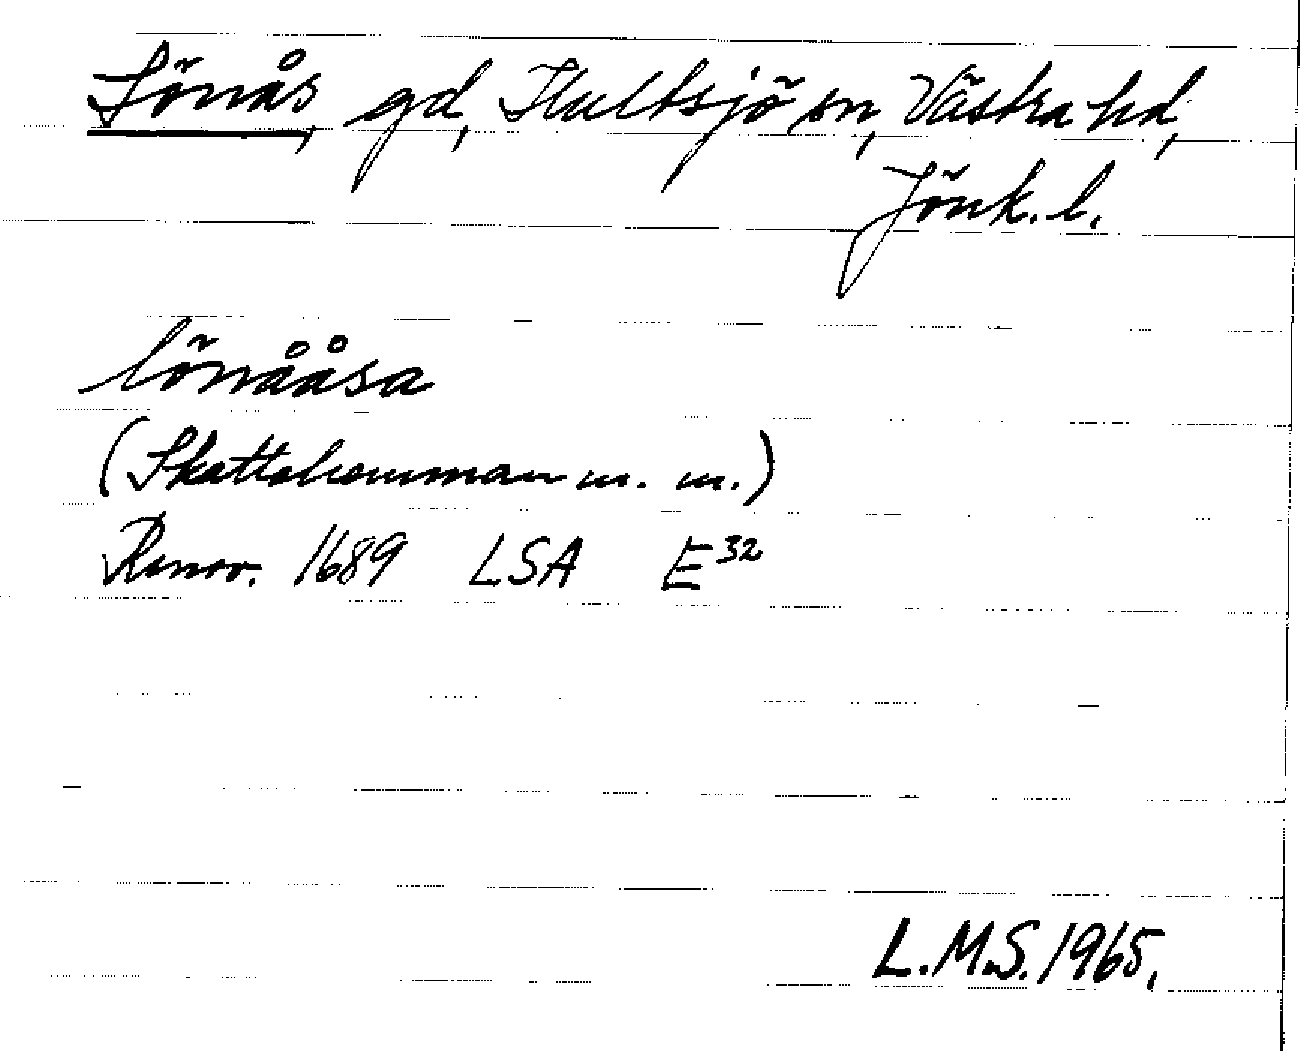 Lönås, gd, Hultsjö sn, Västra hd,
Jönk. l.
lönååsa
(Skattehemman m. m.)
Renov. 1689 LSA E32
L.M.S. 1965.